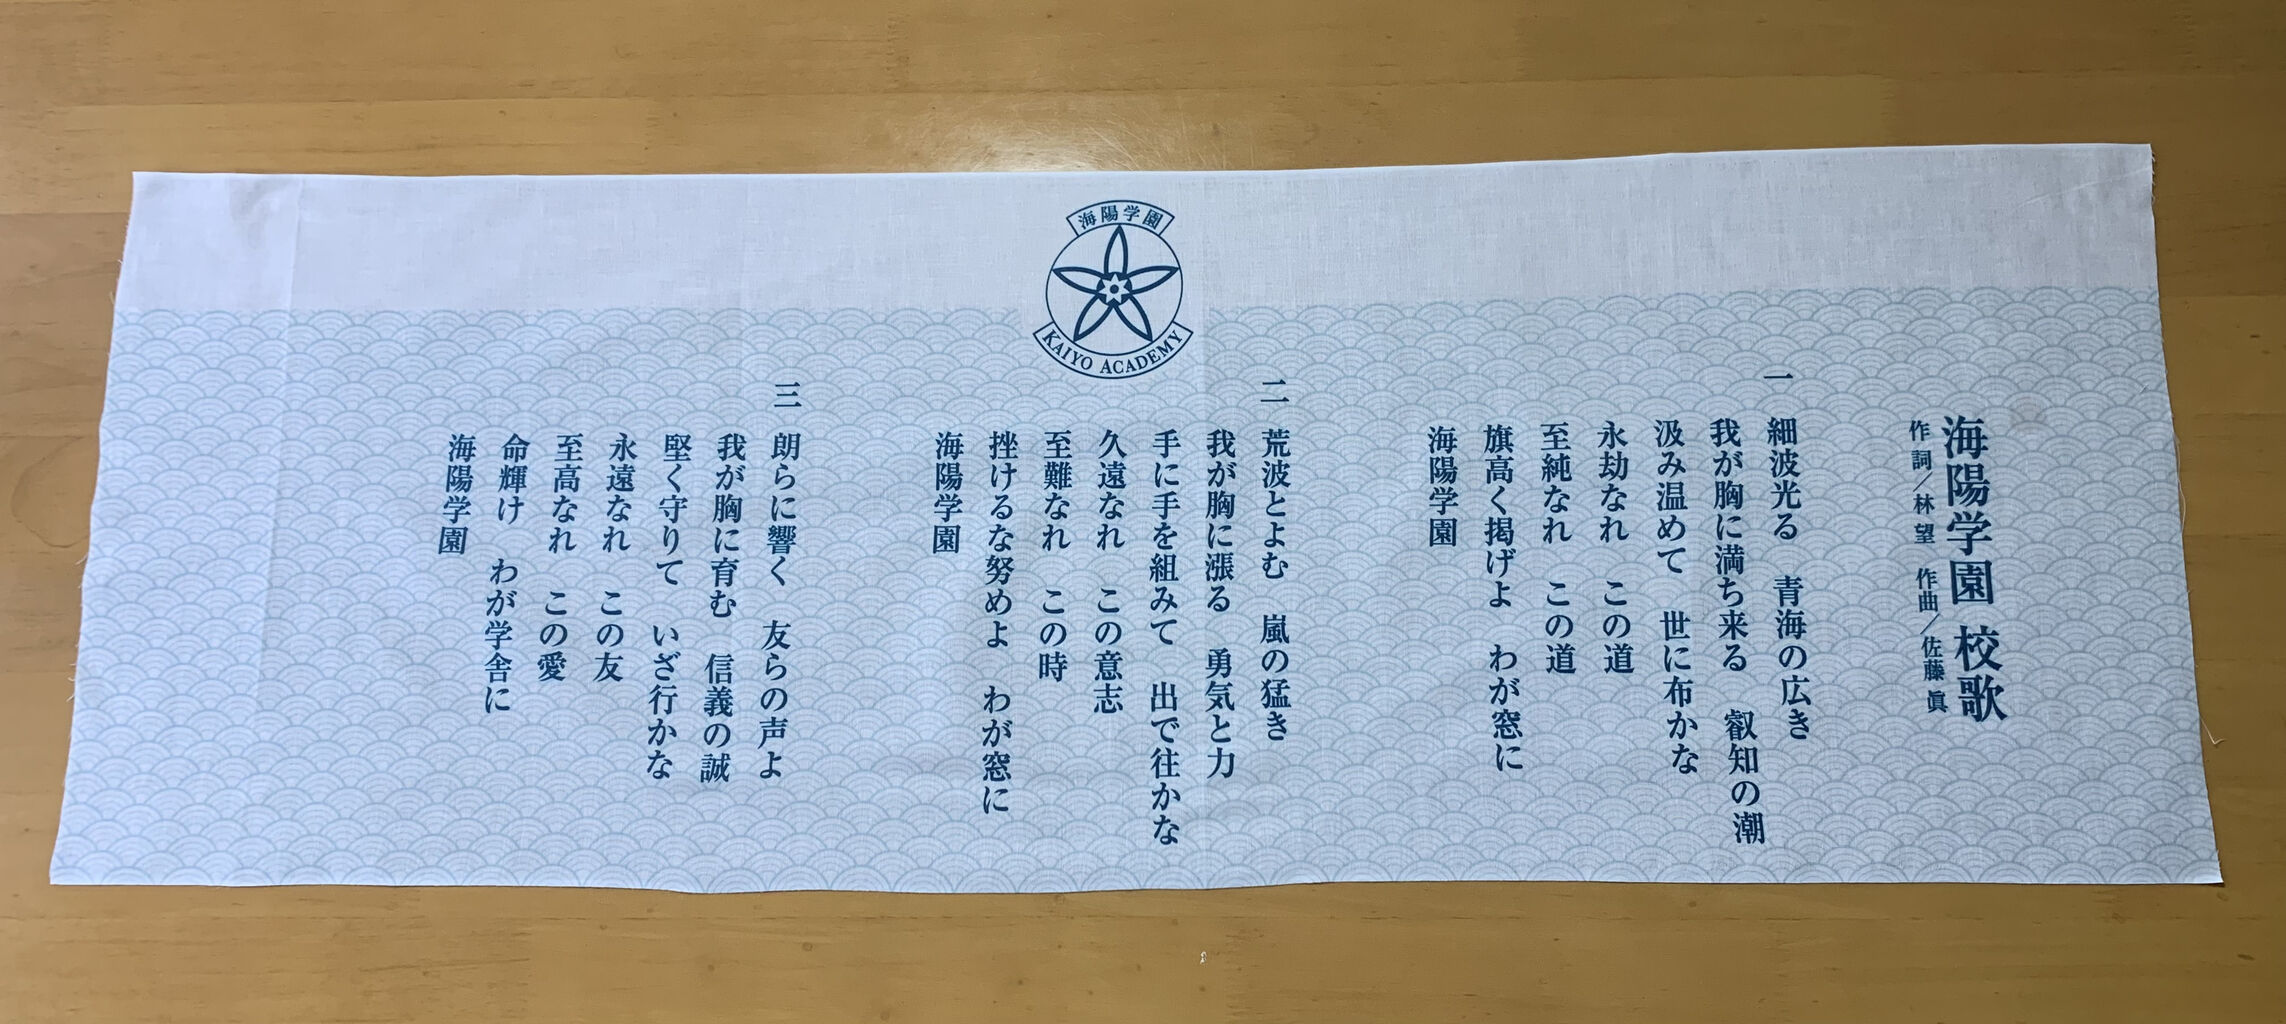 海陽学園
KAIYO ACADEMY
海陽学園 校歌
作詞／林 望 作曲／佐藤 眞
一 細波光る 青海の広き
我が胸に満ち来る 叡知の潮
汲み温めて 世に布かな
永劫なれ この道
至純なれ この道
旗高く掲げよ わが窓に
海陽学園
二 荒波とよむ 嵐の猛き
我が胸に漲る 勇気と力
手に手を組みて 出で往かな
久遠なれ この意志
至難なれ この時
挫けるな努めよ わが窓に
海陽学園
三 朗らに響く 友らの声よ
我が胸に育む 信義の誠
堅く守りて いざ行かな
永遠なれ この友
至高なれ この愛
命輝け わが学舎に
海陽学園